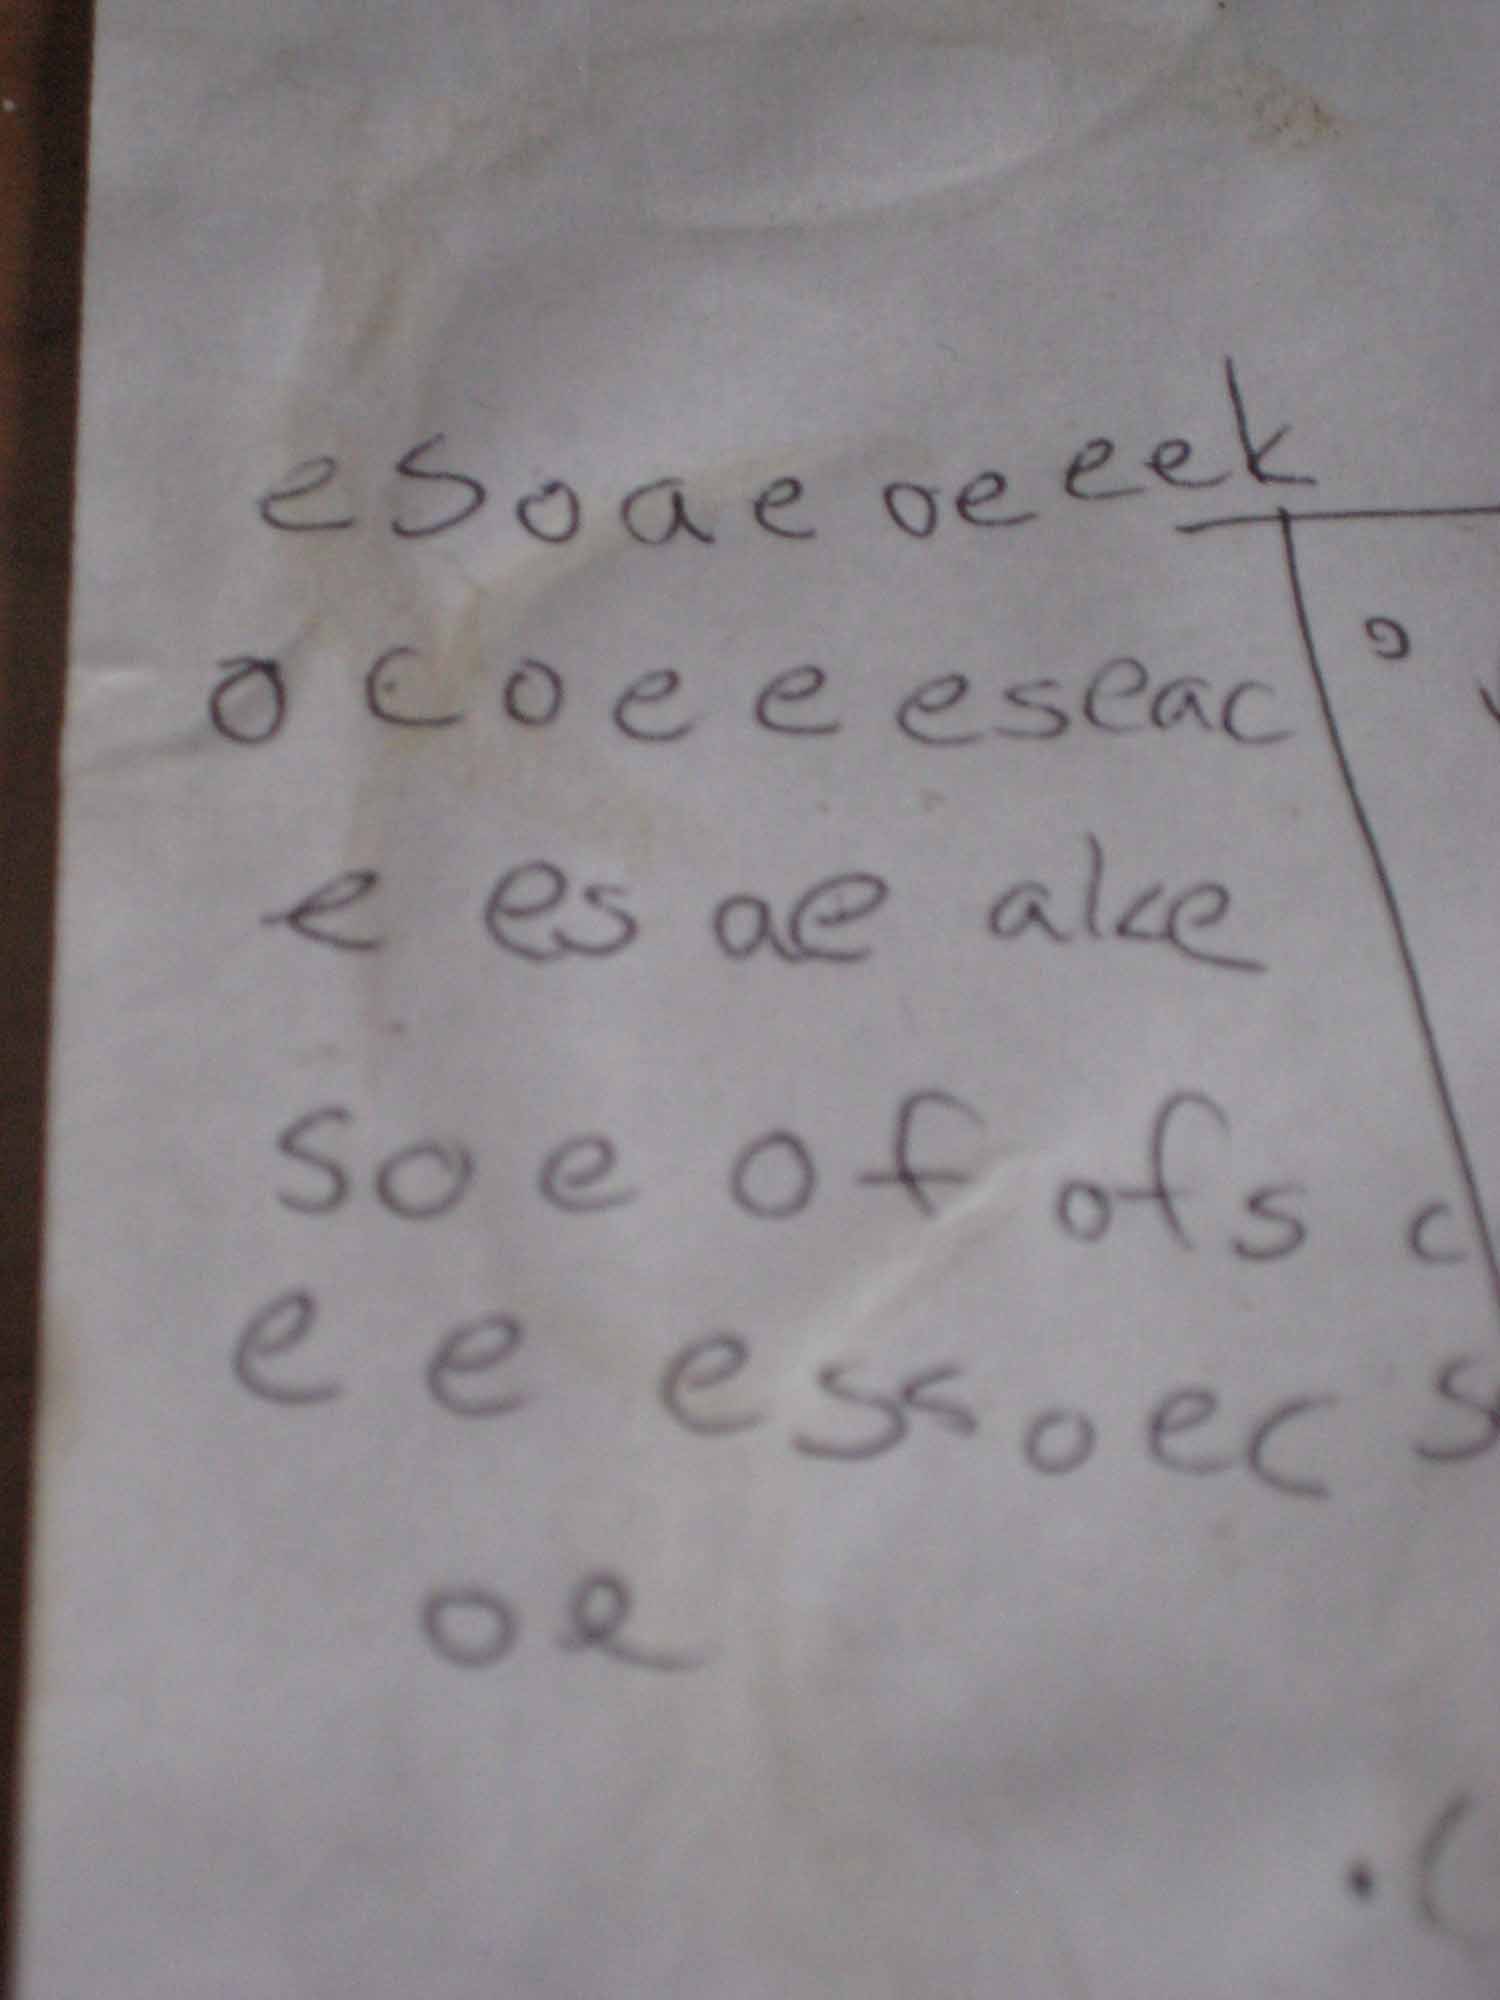 e s o a e oe eek
o c o e e eseac
e es ae alce
so e of ofs c
e e ess oec s
oe